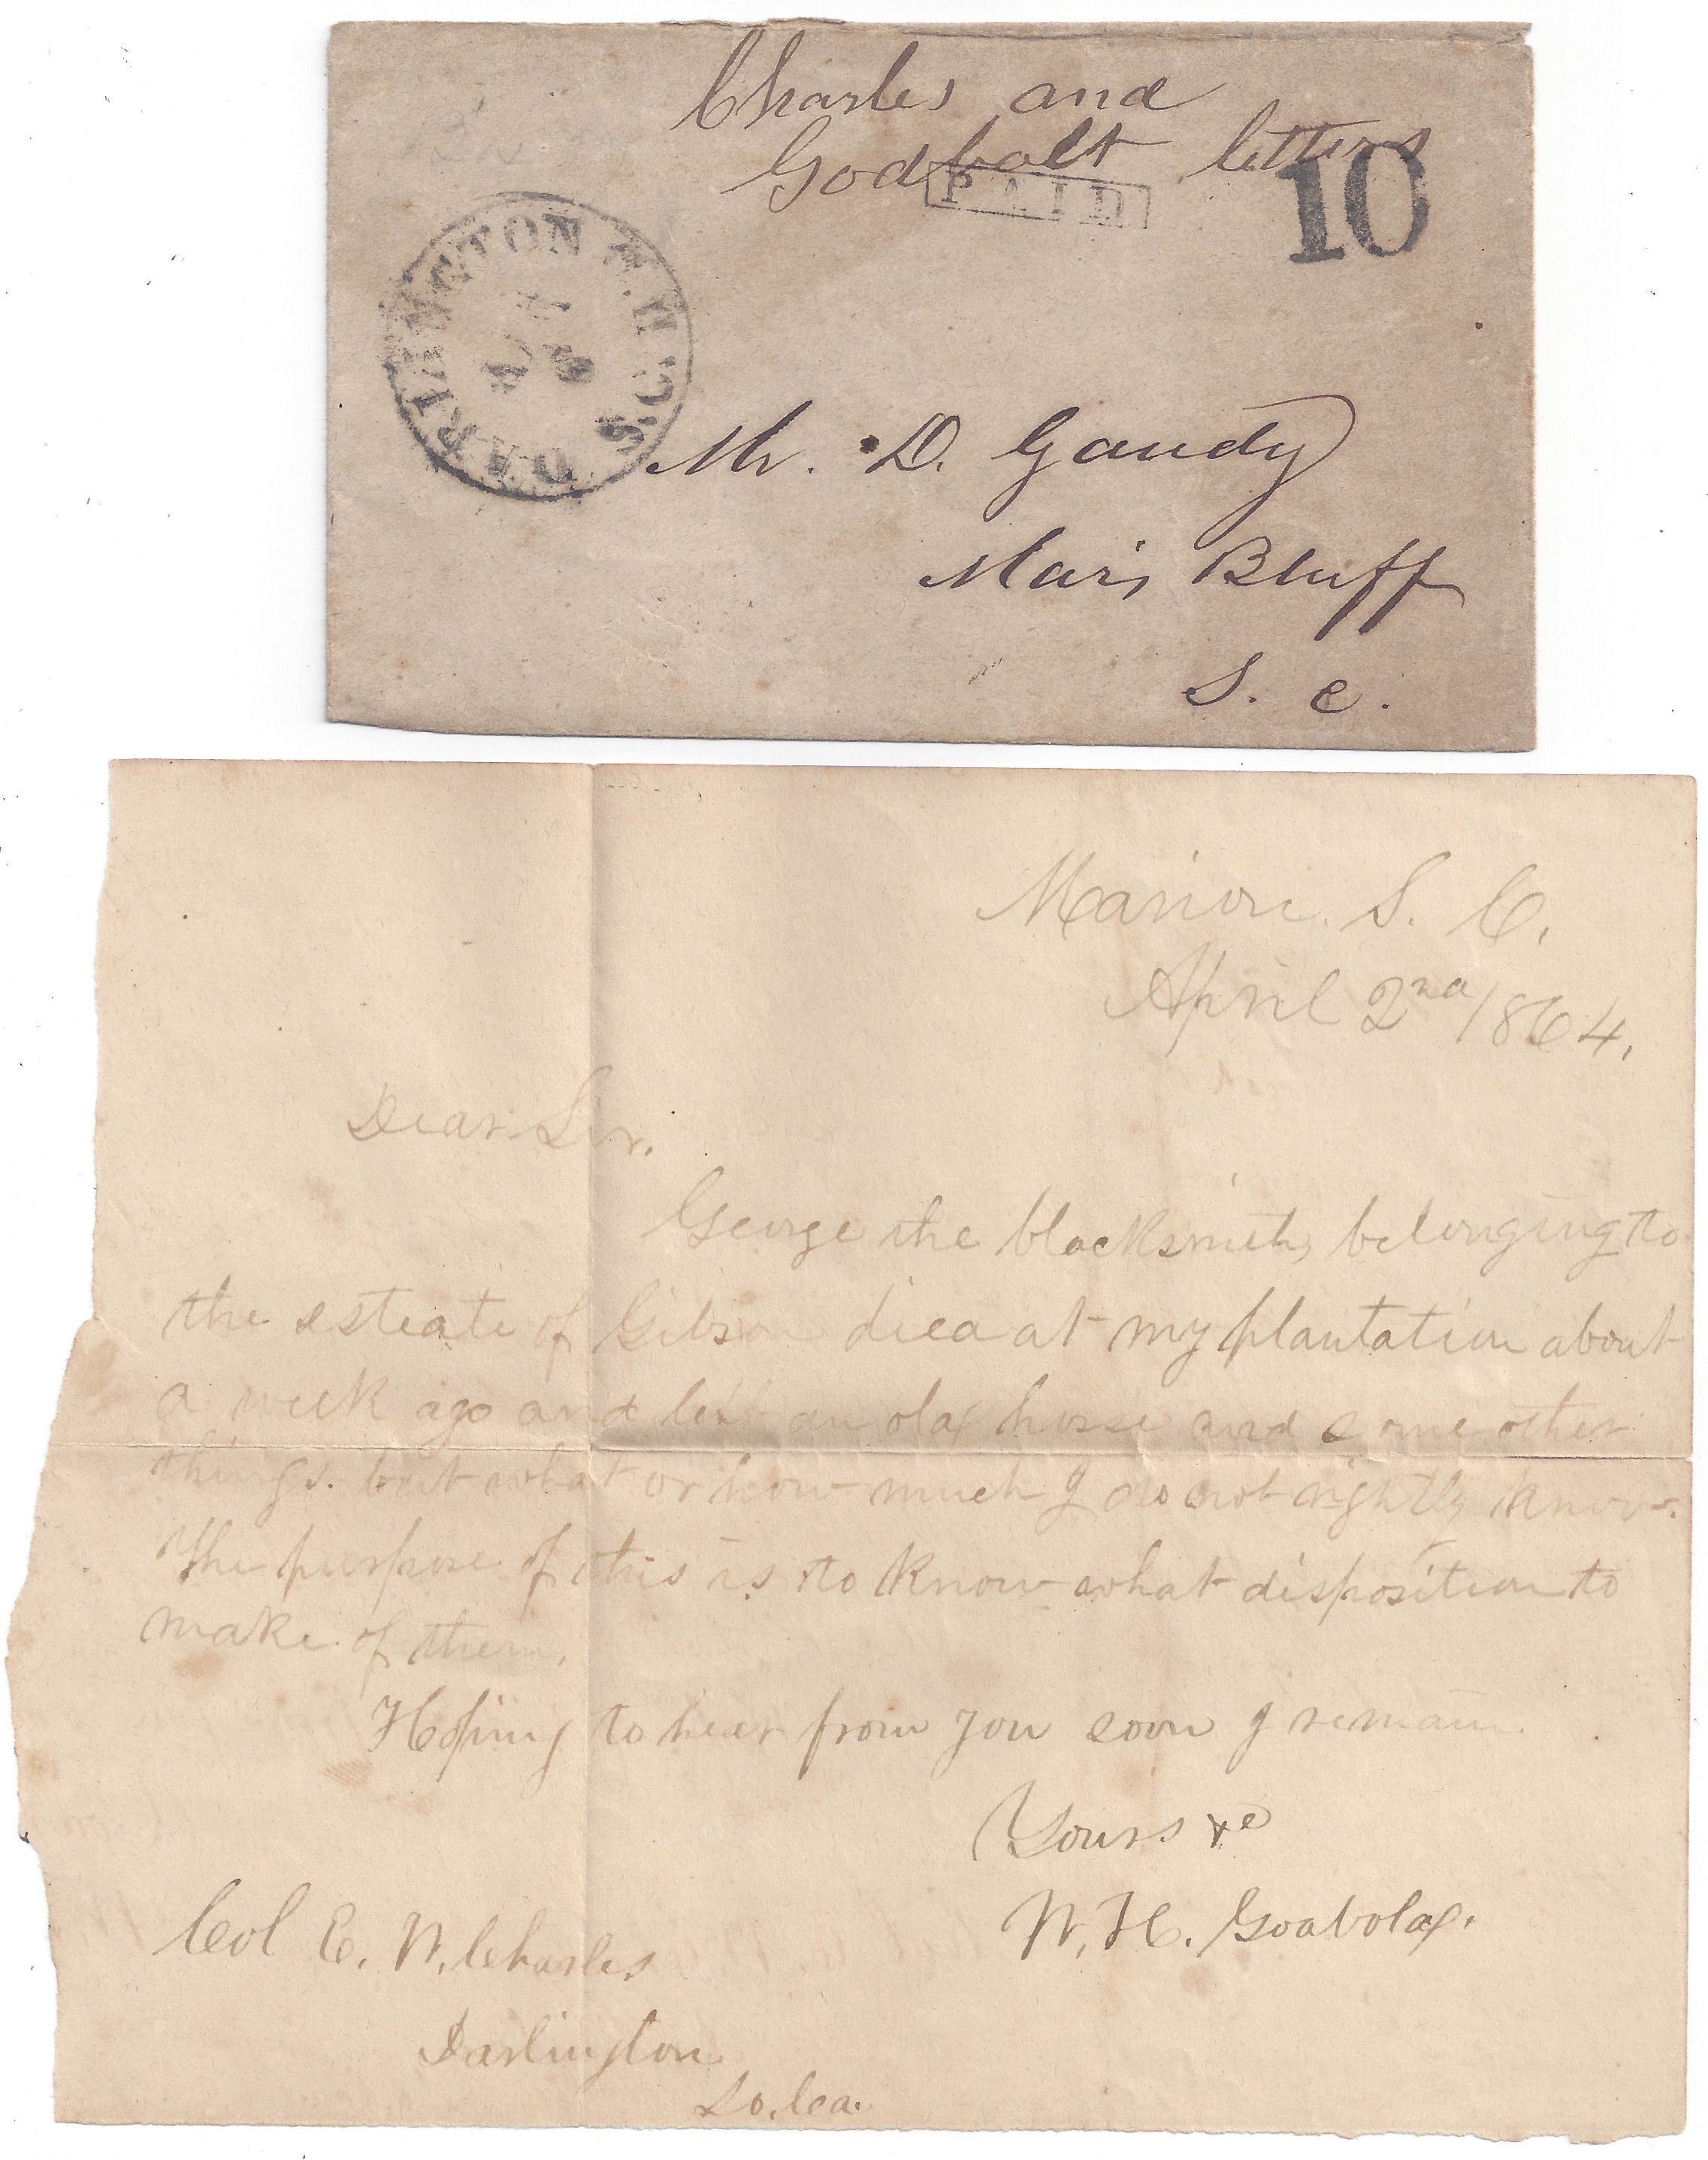 Charles and
Godbolt letters
PAID
10
DARLINGTON C.H.
S.C.
Mr. D. Gandy
Mars Bluff
S. C.
Marion. S. C.
April 2nd 1864.
Dear Sir.
George the blacksmith, belonging to
the esteate of Gibson died at my plantation about
a week ago and left an old horse and some other
things. but what or how much I do not rightly know.
The purpose of this is to know what disposition to
make of them.
Hoping to hear from you soon I remain
Yours &c
W. H. Godbold.
Col E. W. Charles
Darlington
So. Ca.